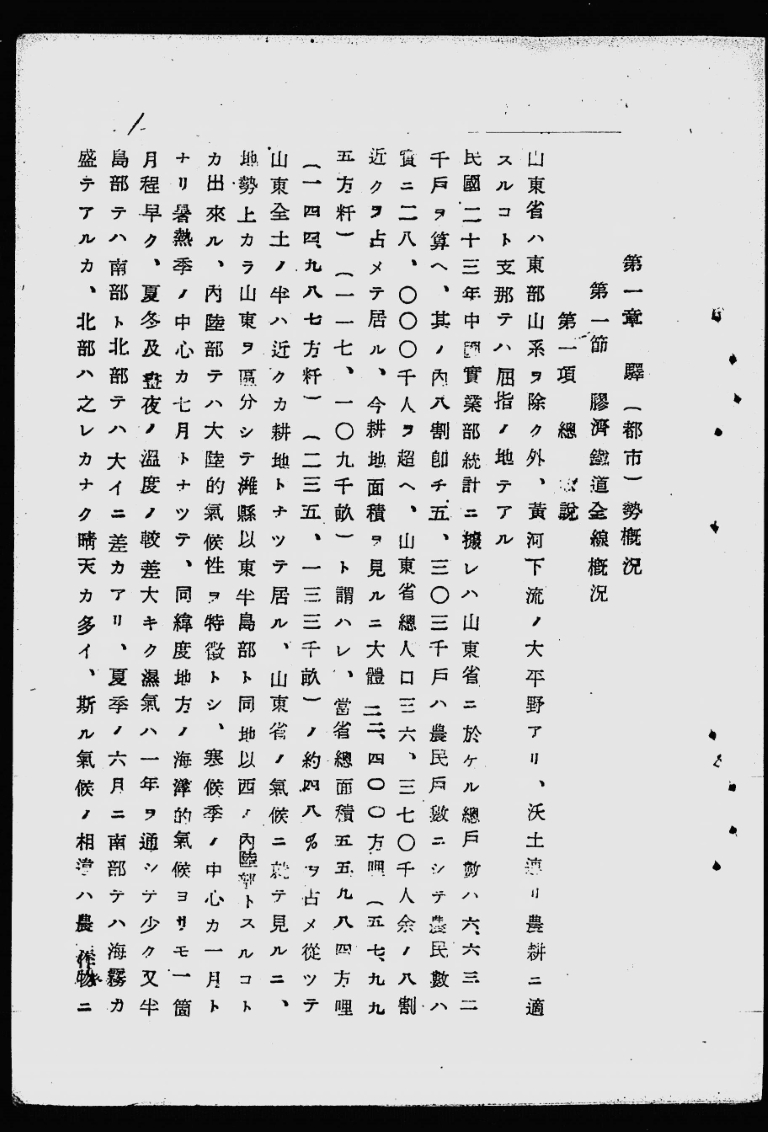 第一章　驛（都市）勢概況
第一節　膠濟鐵道全線概況
第一項　總　說
山東省ハ東部山系ヲ除ク外、黃河下流ノ大平野アリ、沃土連リ農耕ニ適
スルコト支那テハ屈指ノ地テアル
民國二十三年中國實業部統計ニ據レハ山東省ニ於ケル總戶數ハ六、六三二
千戶ヲ算ヘ、其ノ內八割卽チ五、三〇三千戶ハ農民戶數ニシテ農民數ハ
實ニ二八、〇〇〇千人ヲ超ヘ、山東省總人口三六、三七〇千人余ノ八割
近クヲ占メテ居ル、今耕地面積ヲ見ルニ大體二二、四〇〇方哩（五七、九九
五方粁）（一一七、一〇九千畝）ト謂ハレ、當省總面積五五、九八四方哩
（一四四、九八七方粁）（二三五、一三三千畝）ノ約四八％ヲ占メ從ツテ
山東全土ノ半ハ近クカ耕地トナツテ居ル、山東省ノ氣候ニ就テ見ルニ、
地勢上カラ山東ヲ區分シテ濰縣以東半島部ト同地以西ノ內陸部トスルコト
カ出來ル、內陸部テハ大陸的氣候性ヲ特徵トシ、寒候季ノ中心カ一月ト
ナリ暑熱季ノ中心カ七月トナツテ、同緯度地方ノ海洋的氣候ヨリモ一箇
月程早ク、夏冬及晝夜ノ溫度ノ較差大キク濕氣ハ一年ヲ通シテ少ク又半
島部テハ南部ト北部テハ大イニ差カアリ、夏季ノ六月ニ南部テハ海霧カ
盛テアルカ、北部ハ之レカナク晴天カ多イ、斯ル氣候ノ相違ハ農作物ニ